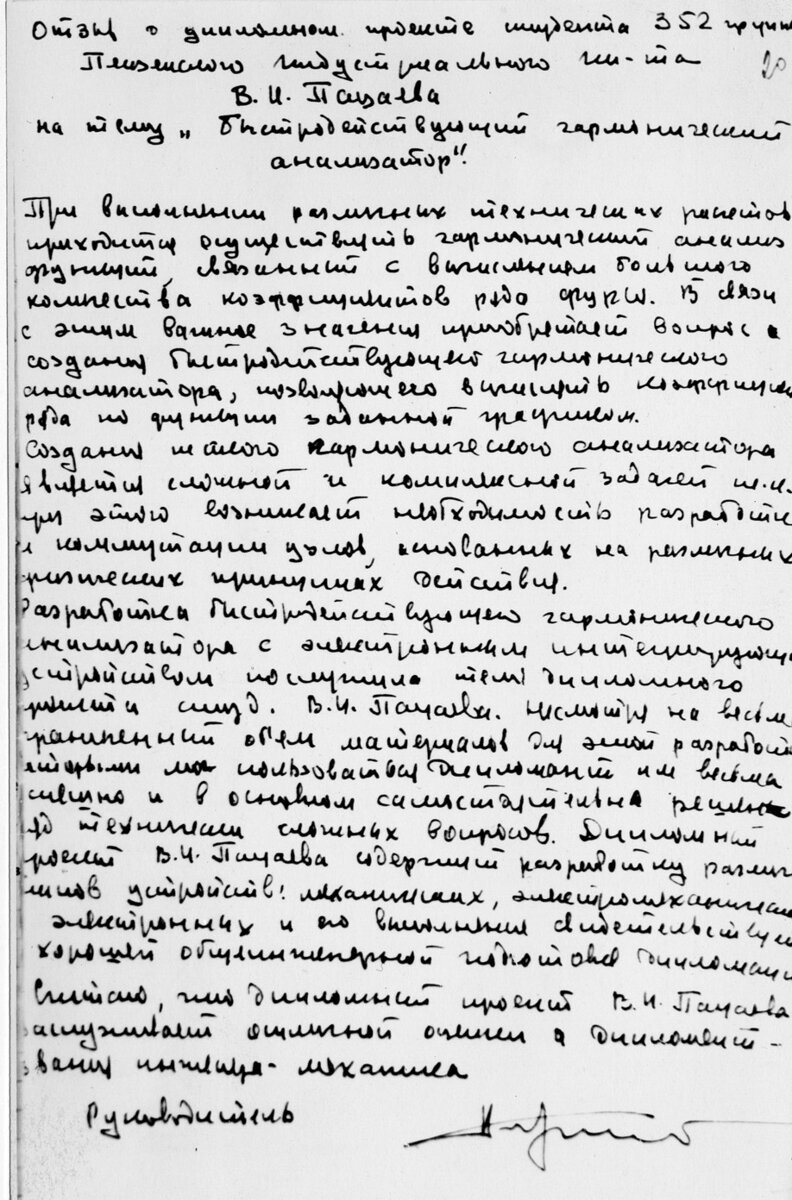 Отзыв о дипломном проекте студента 352 групп
Пензенского индустриального ин-та 20
В. И. Пацаева
на тему „Быстродействующий гармонический
анализатор".
При выполнении различных технических расчетов
приходится осуществлять гармонический анализ
функций, связанный с вычислением большого
количества коэффициентов ряда Фурье. В связи
с этим важное значения приобретает вопрос о
создания быстродействующего гармонического
анализатора, позволяющего вычислить коэффициен
ряда по функции заданной графиком.
Создания такого гармонического анализатора
является сложной и комплексной задачей т.к.
при этого возникает необходимость разработки
и коммутации узлов, основанных на различных
физических принципах действия.
Разработка быстродействующего гармонического
анализатора с электронным интегрирующ
устройством послужила темой дипломного
проекта студ. В.И. Пацаева. Несмотря на весьма
граниченный объем материалов для этой разработ
которыми мог пользоваться дипломант им весьма
спешно и в основном самостоятельна решен
ряд технически сложных вопросов. Дипломный
проект В.И. Пацаева содержит разработку различ
типов устройств: механических, электромеханически
электронных и его выполнения свидетельствует
хорошей общеинженерной подготовке дипломан
Считаю, что дипломный проект В.И. Пацаева
заслуживает отличной оценки а дипломант -
звания инженера-механика
Руководитель